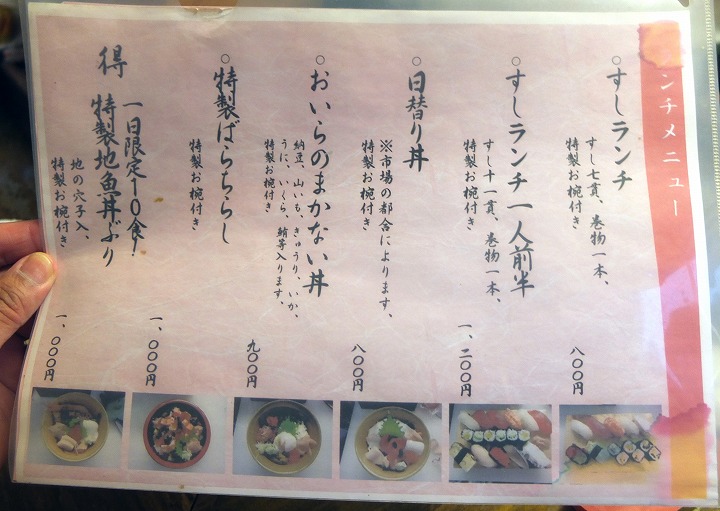 ンチメニュー
○すしランチ
すし七貫、巻物一本、
特製お椀付き
八〇〇円
○すしランチ一人前半
すし十一貫、巻物一本、
特製お椀付き
一、二〇〇円
○日替り丼
※市場の都合によります、
特製お椀付き
八〇〇円
○おいらのまかない丼
納豆、山いも、きゅうり、いか、
うに、いくら、鮪等入ります、
特製お椀付き
九〇〇円
○特製ばらちらし
特製お椀付き
一、〇〇〇円
得 一日限定10食!
特製地魚丼ぶり
地の穴子入、
特製お椀付き
一、〇〇〇円